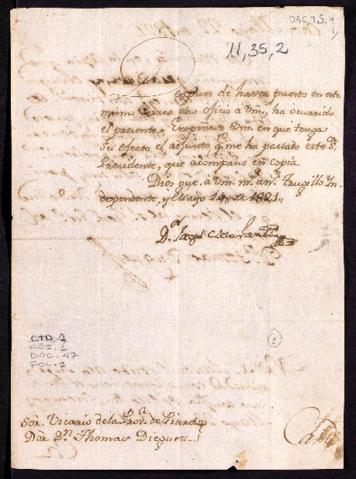 DAC, 13.4
11,35,2
espues de haver puesto en este
mismo Correo otro oficio a Vm, ha ocurrido
el presente. Empeñese Vm en que tenga
su efecto el adjunto q.e me ha pasado este S.r
Presidente, que acompaño en copia.
Dios gue. a Vm. m.s an.s Trugillo In-
dependente, y Mayo 1821.
CTD 1
DOC. 47
FOL. 2
2
Sor. Vicario de la Prov.a de Piura
Dor. D.n Thomas Dieguez